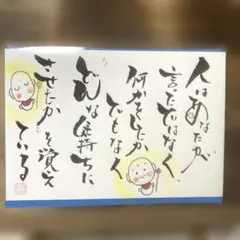 人はあなたが
言た言ではなく
何かをしたか
でもなく
どんな気持ちに
させたかを覚え
ている